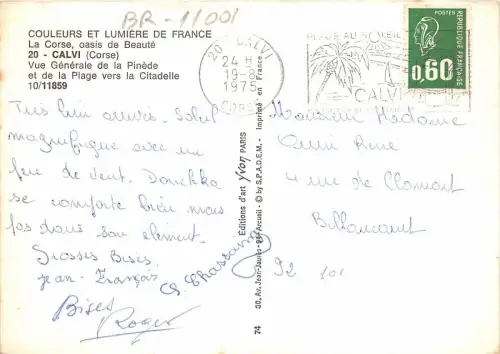 BR-11001
COULEURS ET LUMIÈRE DE FRANCE
La Corse, oasis de Beauté
20 - CALVI (Corse)
Vue Générale de la Pinède
et de la Plage vers la Citadelle
10/11859
20 CALVI
24 H
19-8
1975
CORSE
PLAGE AU SOLEIL
CALVI
POSTES
RÉPUBLIQUE FRANÇAISE
0,60
Très bien arrivés. Soleil
magnifique avec un
peu de vent.
se comporte bien mais
pas dans son élément.
Grosses Bises.
Jean-François
Bises
Roger
74 30, Av. Jean-Jaurès - 94 Arcueil - © by S.P.A.D.E.M. - Imprimé en France
Éditions d'art Yvon PARIS
Monsieur Madame
René
4 rue de Clermont
Billancourt
92 101